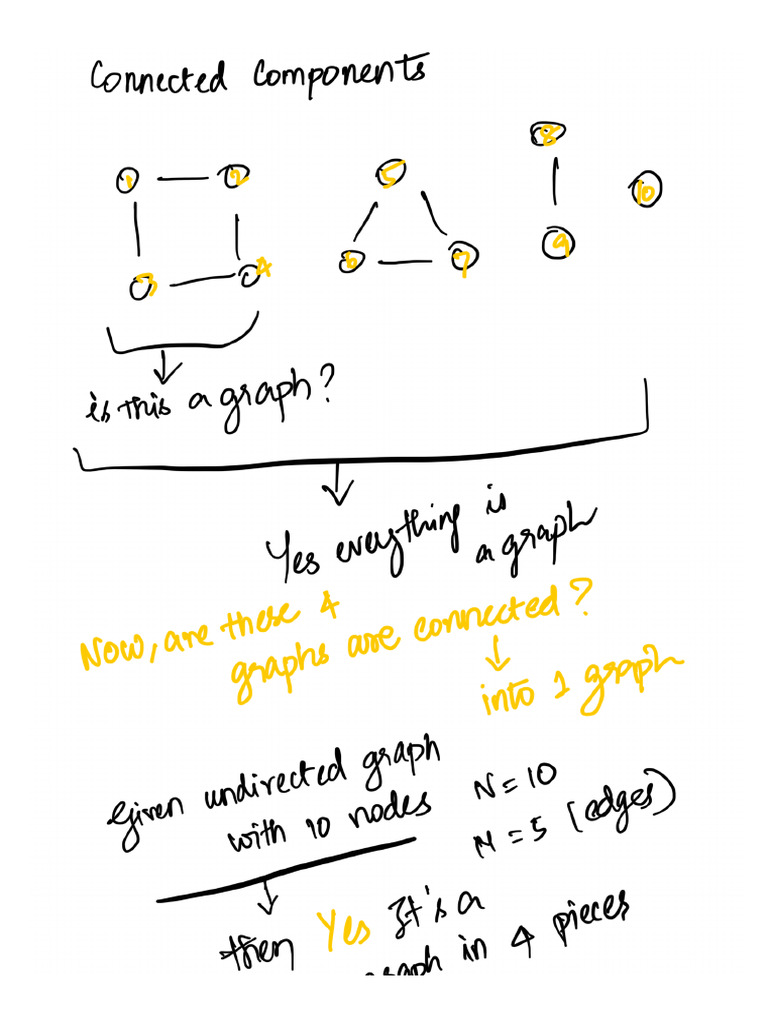 Connected Components
8
1 2 5 10
3 4 6 7 9
is this a graph?
Yes everything is
a graph
Now, are these 4
graphs are connected?
into 1 graph
Given undirected graph
with 10 nodes
N = 10
M = 5 (edges)
then Yes It's a
graph in 4 pieces